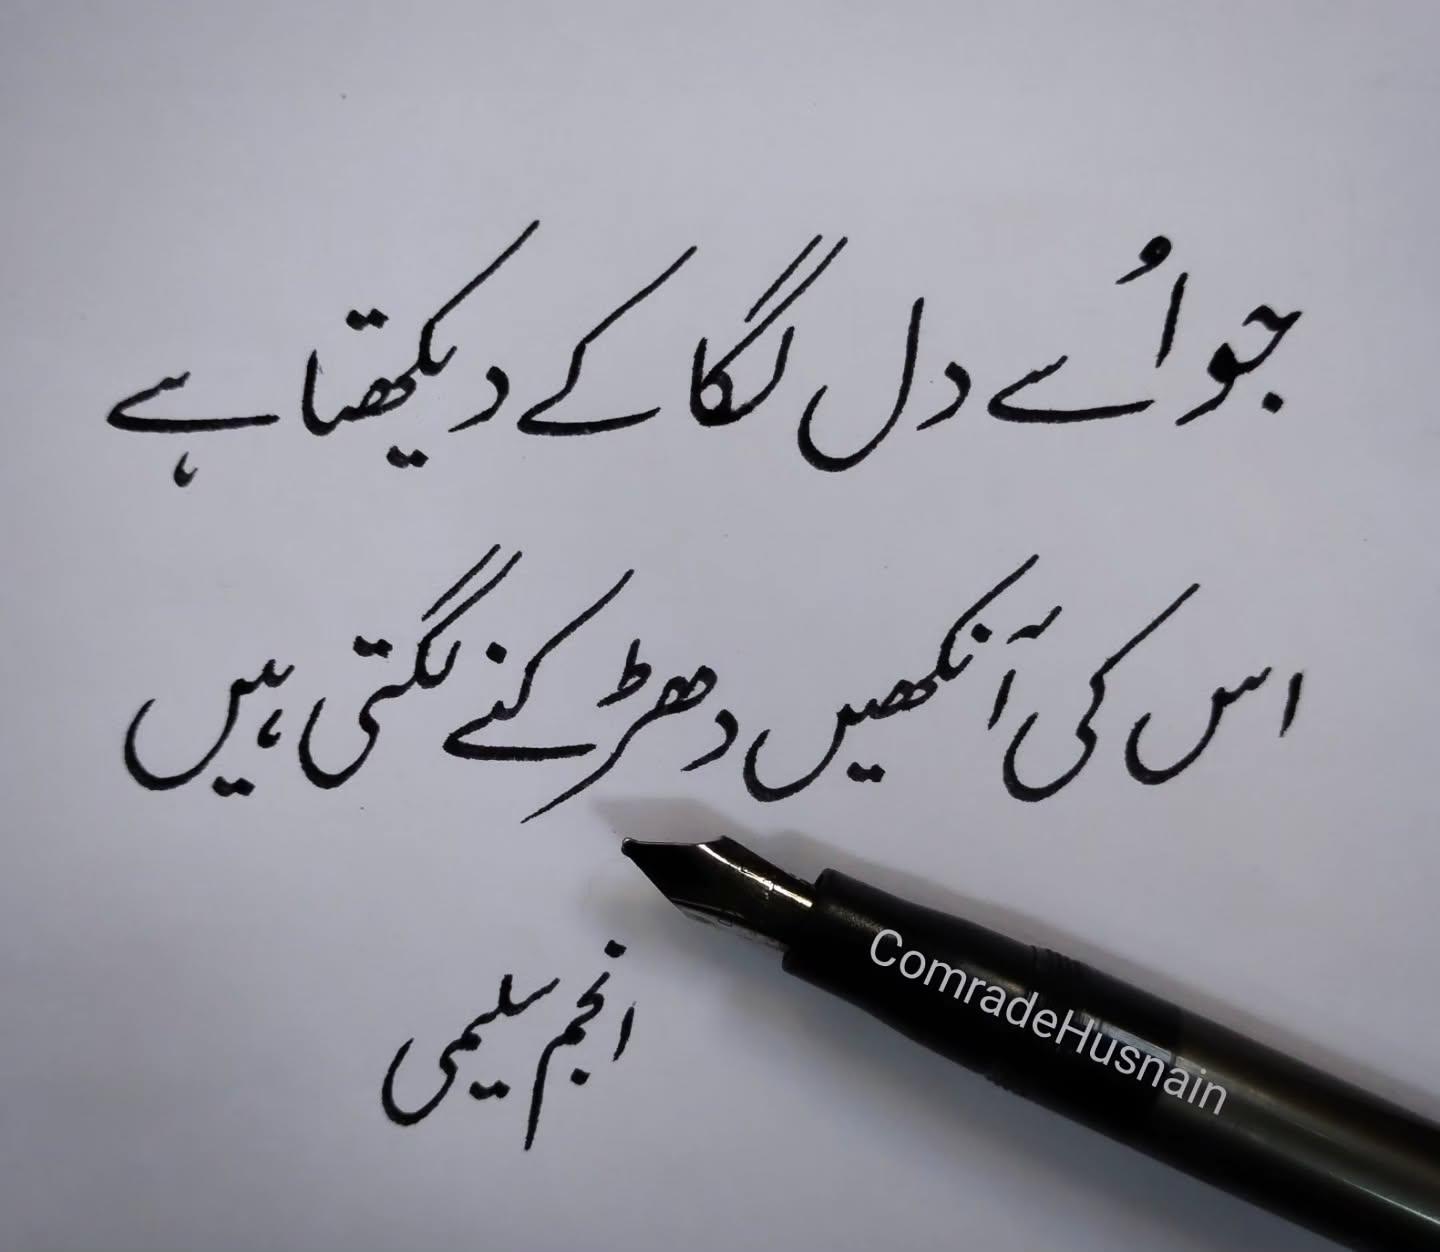 جو اُسے دل لگا کے دیکھتا ہے
اس کی آنکھیں دھڑکنے لگتی ہیں
انجم سلیمی
ComradeHusnain